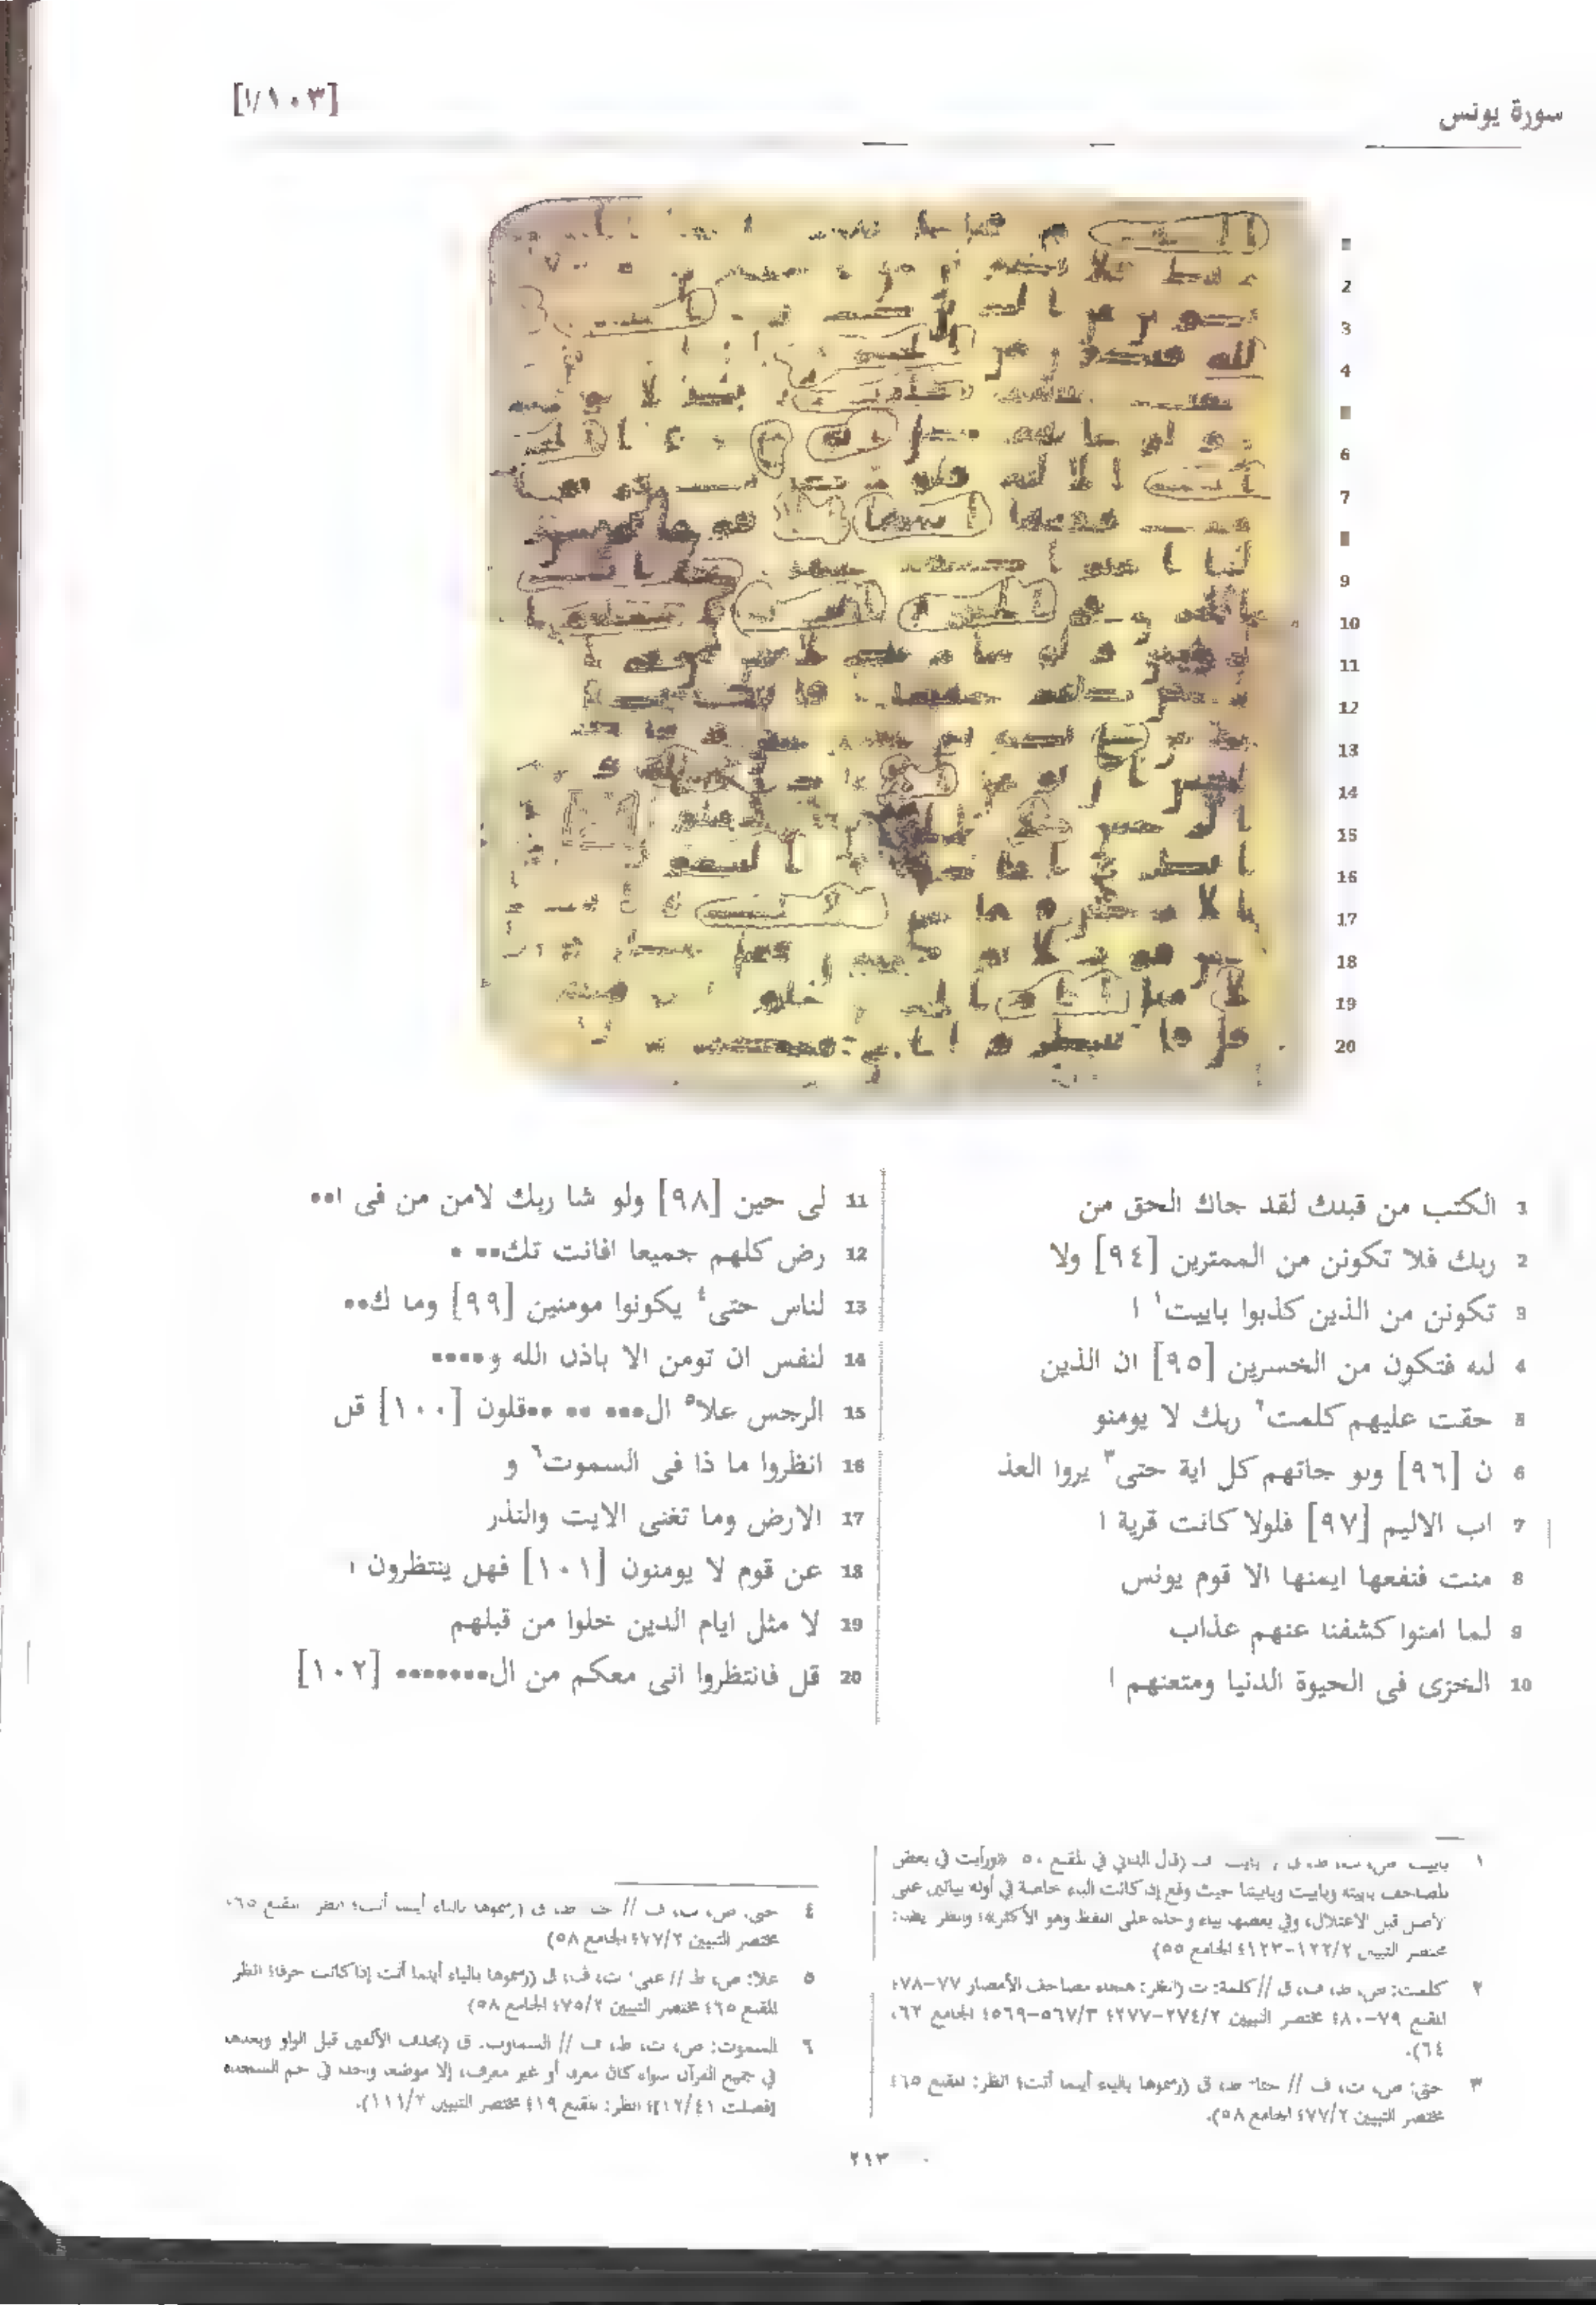 سورة يونس
[١٠٣/ا]
1 الكتب من قبلك لقد جاك الحق من
2 ربك فلا تكونن من الممترين [٩٤] ولا
3 تكونن من الذين كذبوا باييت١ ا
4 لله فتكون من الخسرين [٩٥] ان الذين
5 حقت عليهم كلمت٢ ربك لا يومنو
6 ن [٩٦] ولو جاتهم كل اية حتى٣ يروا العذ
7 اب الاليم [٩٧] فلولا كانت قرية ا
8 منت فنفعها ايمنها الا قوم يونس
9 لما امنوا كشفنا عنهم عذاب
10 الخزى فى الحيوة الدنيا ومتعنهم ا
11 لى حين [٩٨] ولو شا ربك لامن من فى ا••
12 رض كلهم جميعا افانت تك•• •
13 لناس حتى٤ يكونوا مومنين [٩٩] وما ك••
14 لنفس ان تومن الا باذن الله و••••
15 الرجس علا٥ ال••• •• ••قلون [١٠٠] قل
16 انظروا ما ذا فى السموت٦ و
17 الارض وما تغنى الايت والنذر
18 عن قوم لا يومنون [١٠١] فهل ينتظرون ا
19 لا مثل ايام الذين خلوا من قبلهم
20 قل فانتظروا انى معكم من ال••••••• [١٠٢]
١ باييت: ص، ت، ط، ف (قال الداني في المقنع ٥٠ «ورأيت في بعض
المصاحف باييته وباييت وباييتنا حيث وقع إذا كانت الباء خاصة في أوله بيائين على
الأصل قبل الاعتلال، وفي بعضها بياء واحدة على اللفظ وهو الأكثر»؛ وانظر أيضا:
مختصر التبيين ١٢٢/٢-١٢٣؛ الجامع ٥٥)
٢ كلمت: ص، ط، ف، ق // كلمة: ت (انظر: هجاء مصاحف الأمصار ٧٧-٧٨؛
المقنع ٧٩-٨٠؛ مختصر التبيين ٢٧٤/٢-٢٧٧؛ ٥٦٧/٣-٥٦٩؛ الجامع ٦٢،
٦٤).
٣ حتى: ص، ت، ف // حتا: ط، ق (رسموها بالياء أينما أتت؛ انظر: المقنع ٦٥؛
مختصر التبيين ٧٧/٢؛ الجامع ٥٨).
٤ حتى: ص، ت، ف // حتا: ط، ق (رسموها بالياء أينما أتت؛ انظر: المقنع ٦٥،
مختصر التبيين ٧٧/٢؛ الجامع ٥٨)
٥ علا: ص، ط // على: ت، ف، ق (رسموها بالياء أينما أتت إذا كانت حرفا؛ انظر
المقنع ٦٥؛ مختصر التبيين ٧٥/٢؛ الجامع ٥٨)
٦ السموت: ص، ت، ط، ف // السماوت: ق (بحذف الألفين قبل الواو وبعدها
في جميع القرآن سواء كان معرفا أو غير معرف، إلا موضعا واحدا في حم السجدة
[فصلت ١٢/٤١]؛ انظر: المقنع ١٩؛ مختصر التبيين ١١١/٢).
٢١٣